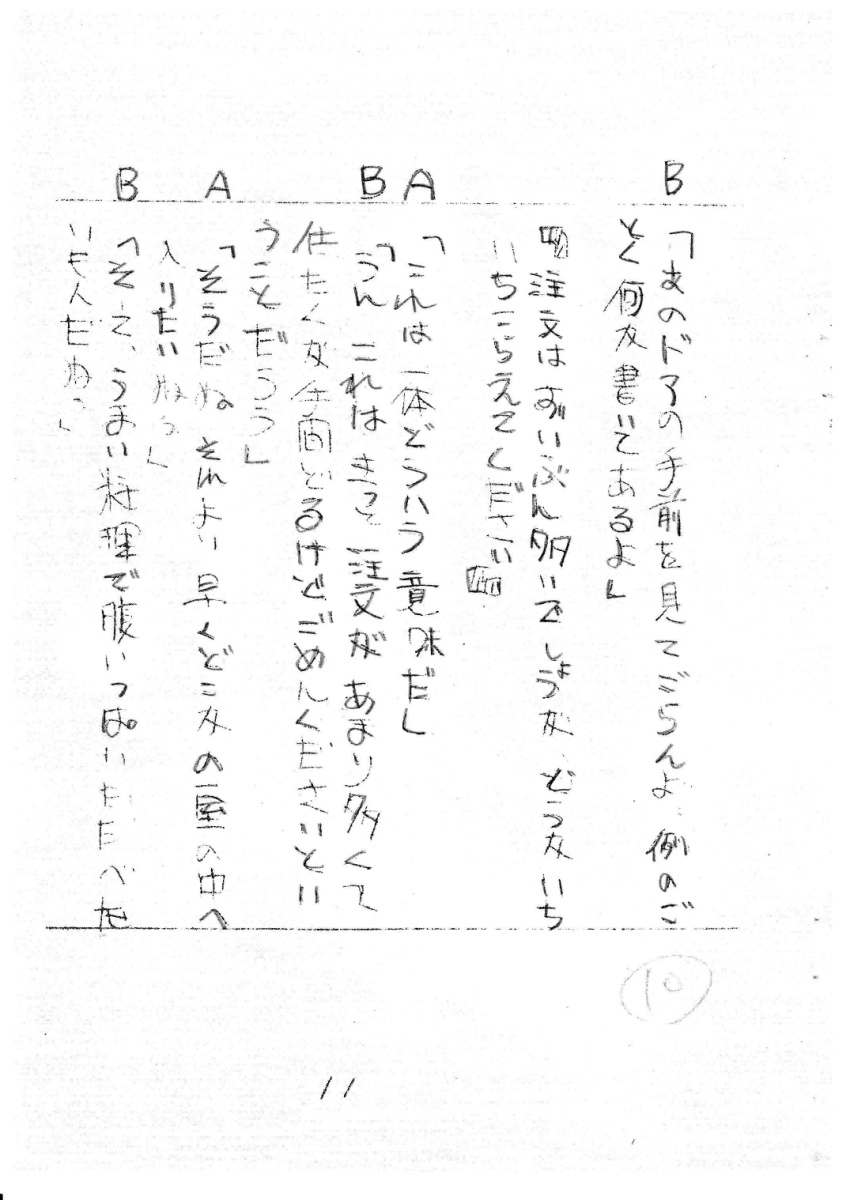 B 「あのドアの手前を見てごらんよ、例のご
とく何か書いてあるよ」
注文はずいぶん多いでしょうが、どうかいち
いちこらえてください
A 「これは一体どういう意味だ」
B 「うん これはきっと注文があまり多くて
仕たくが手間どるけどごめんくださいとい
うことだろう」
A 「そうだね。それより早くどこかの室の中へ
入りたいねぇ」
B 「そして、うまい料理で腹いっぱいにたべた
いもんだねぇ」
10
11